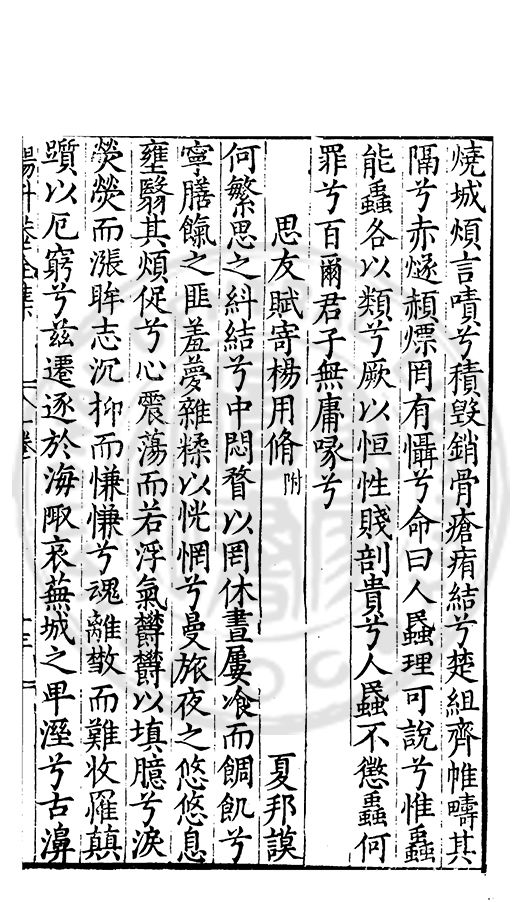 燒城煩言嘖兮積毀銷骨瘡痏結兮楚組齊帷疇其
隔兮赤燧赬熛罔有懾兮命曰人蟁理可說兮惟蟁
能蟁各以類兮厥以恒性賤剖貴兮人蟁不懲蟁何
罪兮百爾君子無庸喙兮
思友賦寄楊用脩附 夏邦謨
何繁思之糾結兮中悶瞀以罔休晝屢飡而餇飢兮
寧膳餼之匪羞夢雜糅以恍惘兮曼旅夜之悠悠息
壅翳其煩促兮心震蕩而若浮氣欝欝以填臆兮淚
熒熒而漲眸志沉抑而慊慊兮魂離散而難收罹蹎
躓以厄窮兮茲遷逐於海陬哀蕪城之卑溼兮古濞